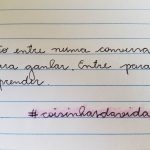 entre numa conversa
ara ganhar. Entre para
prender.
#coisinhasdavida